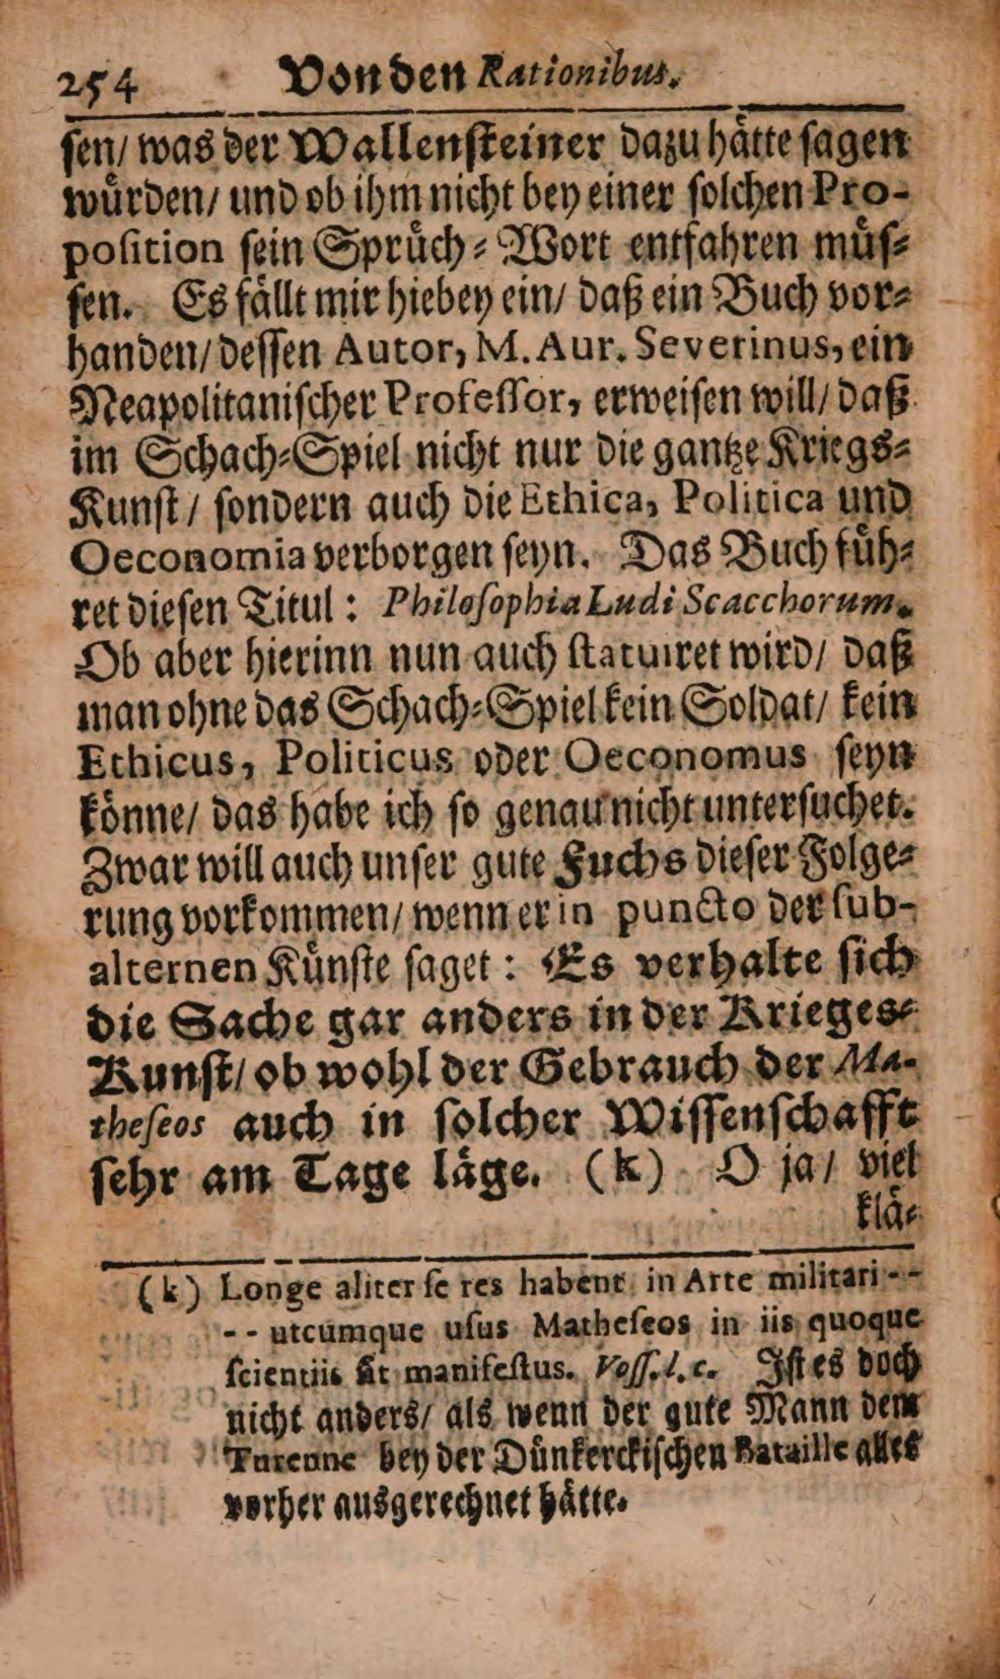 254 Von den Rationibus.
sen/ was der Wallensteiner dazu hätte sagen
würden/ und ob ihm nicht bey einer solchen Pro-
position sein Sprüch-Wort entfahren müs-
sen. Es fällt mir hiebey ein/ daß ein Buch vor-
handen/ dessen Autor, M. Aur. Severinus, ein
Neapolitanischer Professor, erweisen will/ daß
im Schach-Spiel nicht nur die gantze Kriegs-
Kunst/ sondern auch die Ethica, Politica und
Oeconomia verborgen seyn. Das Buch füh-
ret diesen Titul: Philosophia Ludi Scacchorum.
Ob aber hierinn nun auch statuiret wird/ daß
man ohne das Schach-Spiel kein Soldat/ kein
Ethicus, Politicus oder Oeconomus seyn
könne/ das habe ich so genau nicht untersuchet.
Zwar will auch unser gute Fuchs dieser Folge-
rung vorkommen/ wenn er in puncto der sub-
alternen Künste saget: Es verhalte sich
die Sache gar anders in der Krieges-
Kunst/ ob wohl der Gebrauch der Ma-
theseos auch in solcher Wissenschafft
sehr am Tage läge. (k) O ja/ viel
klä-
(k) Longe aliter se res habent in Arte militari - -
- - utcumque usus Matheseos in iis quoque
scientiis sit manifestus. Voss. l. c. Ist es doch
nicht anders/ als wenn der gute Mann dem
Turenne bey der Dünkerckischen Bataille alles
vorher ausgerechnet hätte.